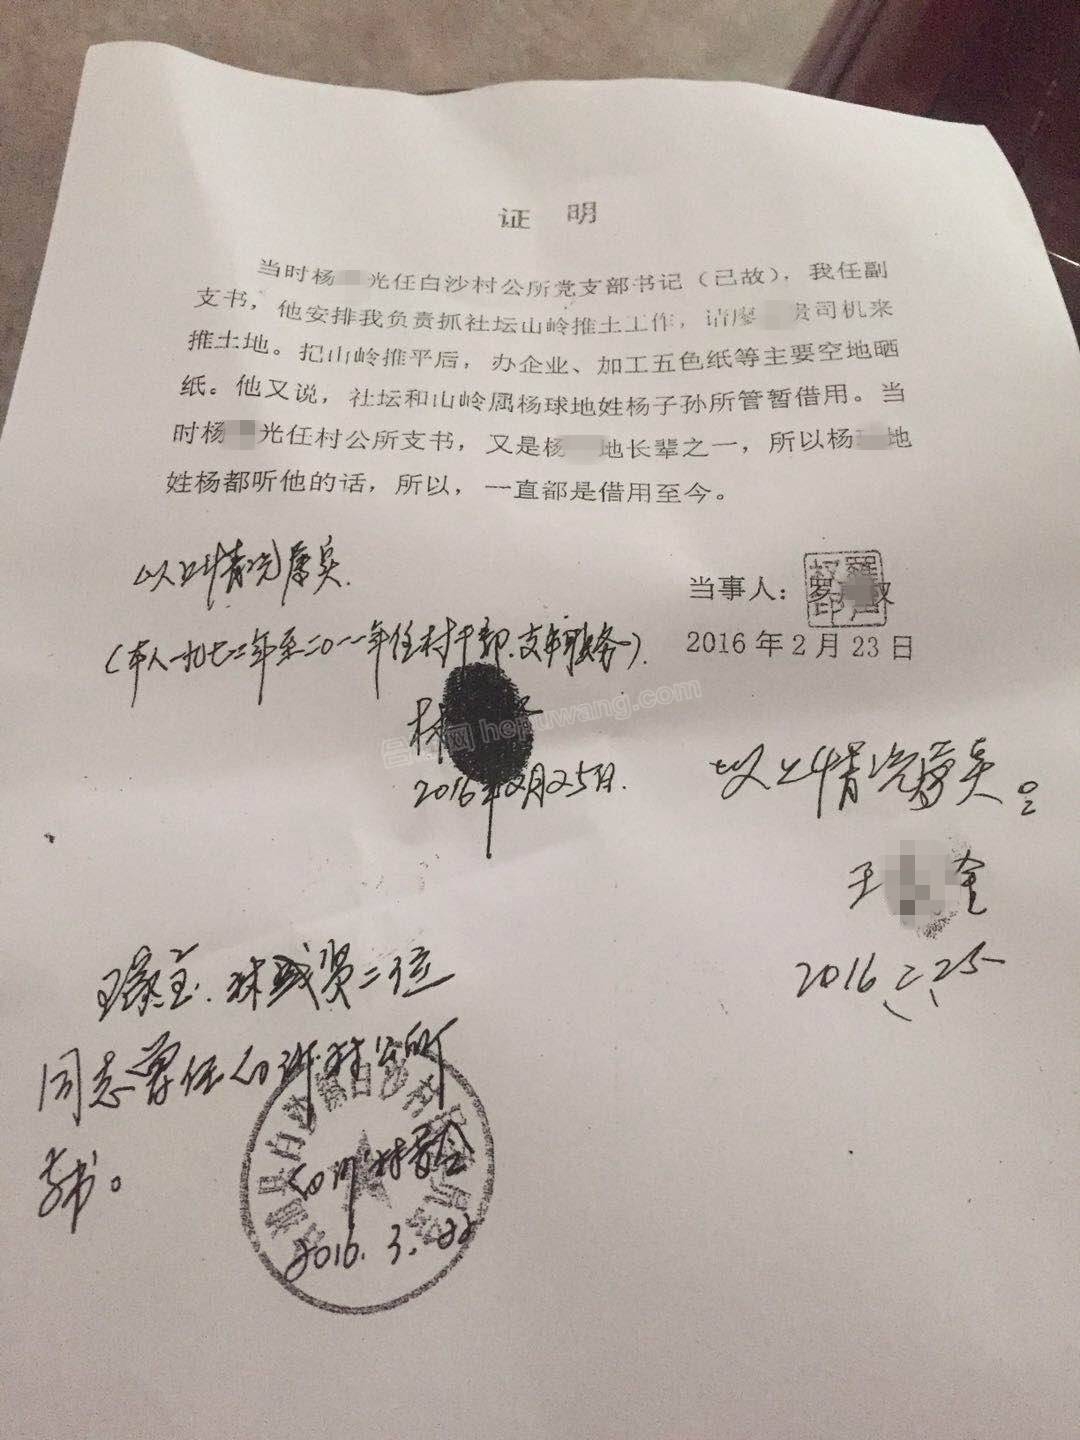 证 明
当时杨 光任白沙村公所党支部书记（已故），我任副
支书，他安排我负责抓社坛山岭推土工作，请廖 贵司机来
推土地。把山岭推平后，办企业、加工五色纸等主要空地晒
纸。他又说，社坛和山岭属杨球地姓杨子孙所管暂借用。当
时杨 光任村公所支书，又是杨 地长辈之一，所以杨 地
姓杨都听他的话，所以，一直都是借用至今。
以上情况属实.
当事人：罗 权
2016年2月23日
(本人一九七二年至二0一一年任村干部.支书职务).
林
2016年2月25日.
hepuwang.com
以上情况属实。
王 奎
2016 二 25
二位
同志曾任白沙村公所
支书。
2016.3.22